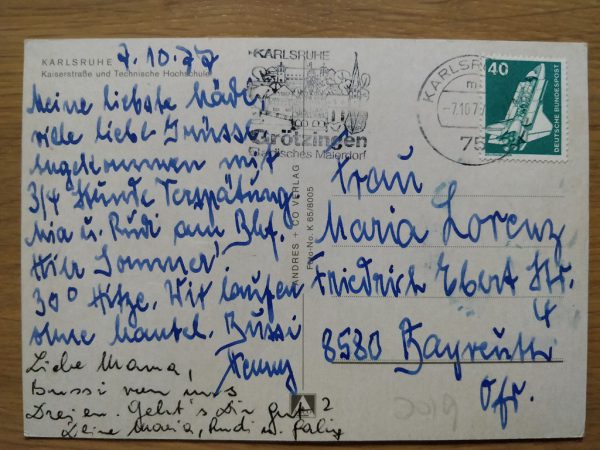 KARLSRUHE
Kaiserstraße und Technische Hochschule
7.10.77
Meine liebste Mädl,
viele liebe Grüsse
Angekommen mit
3/4 Stunde Verspätung.
Mia u. Rudi am Bhf.
Hier Sommer,
30° Hitze. Wir laufen
ohne Mantel. Bussi
Liebe Mama,
Bussi von uns
Dreien. Geht's Dir gut?
Deine Maria, Rudi u.
ANDRES + CO VERLAG
K 65/8005
KARLSRUHE
Grötzingen
Badisches Malerdorf
KARLSRUHE
-7.10.7
75
40
DEUTSCHE BUNDESPOST
Frau
Maria Lorenz
Friedrich Ebert Str.
4
8580 Bayreuth
Ofr.